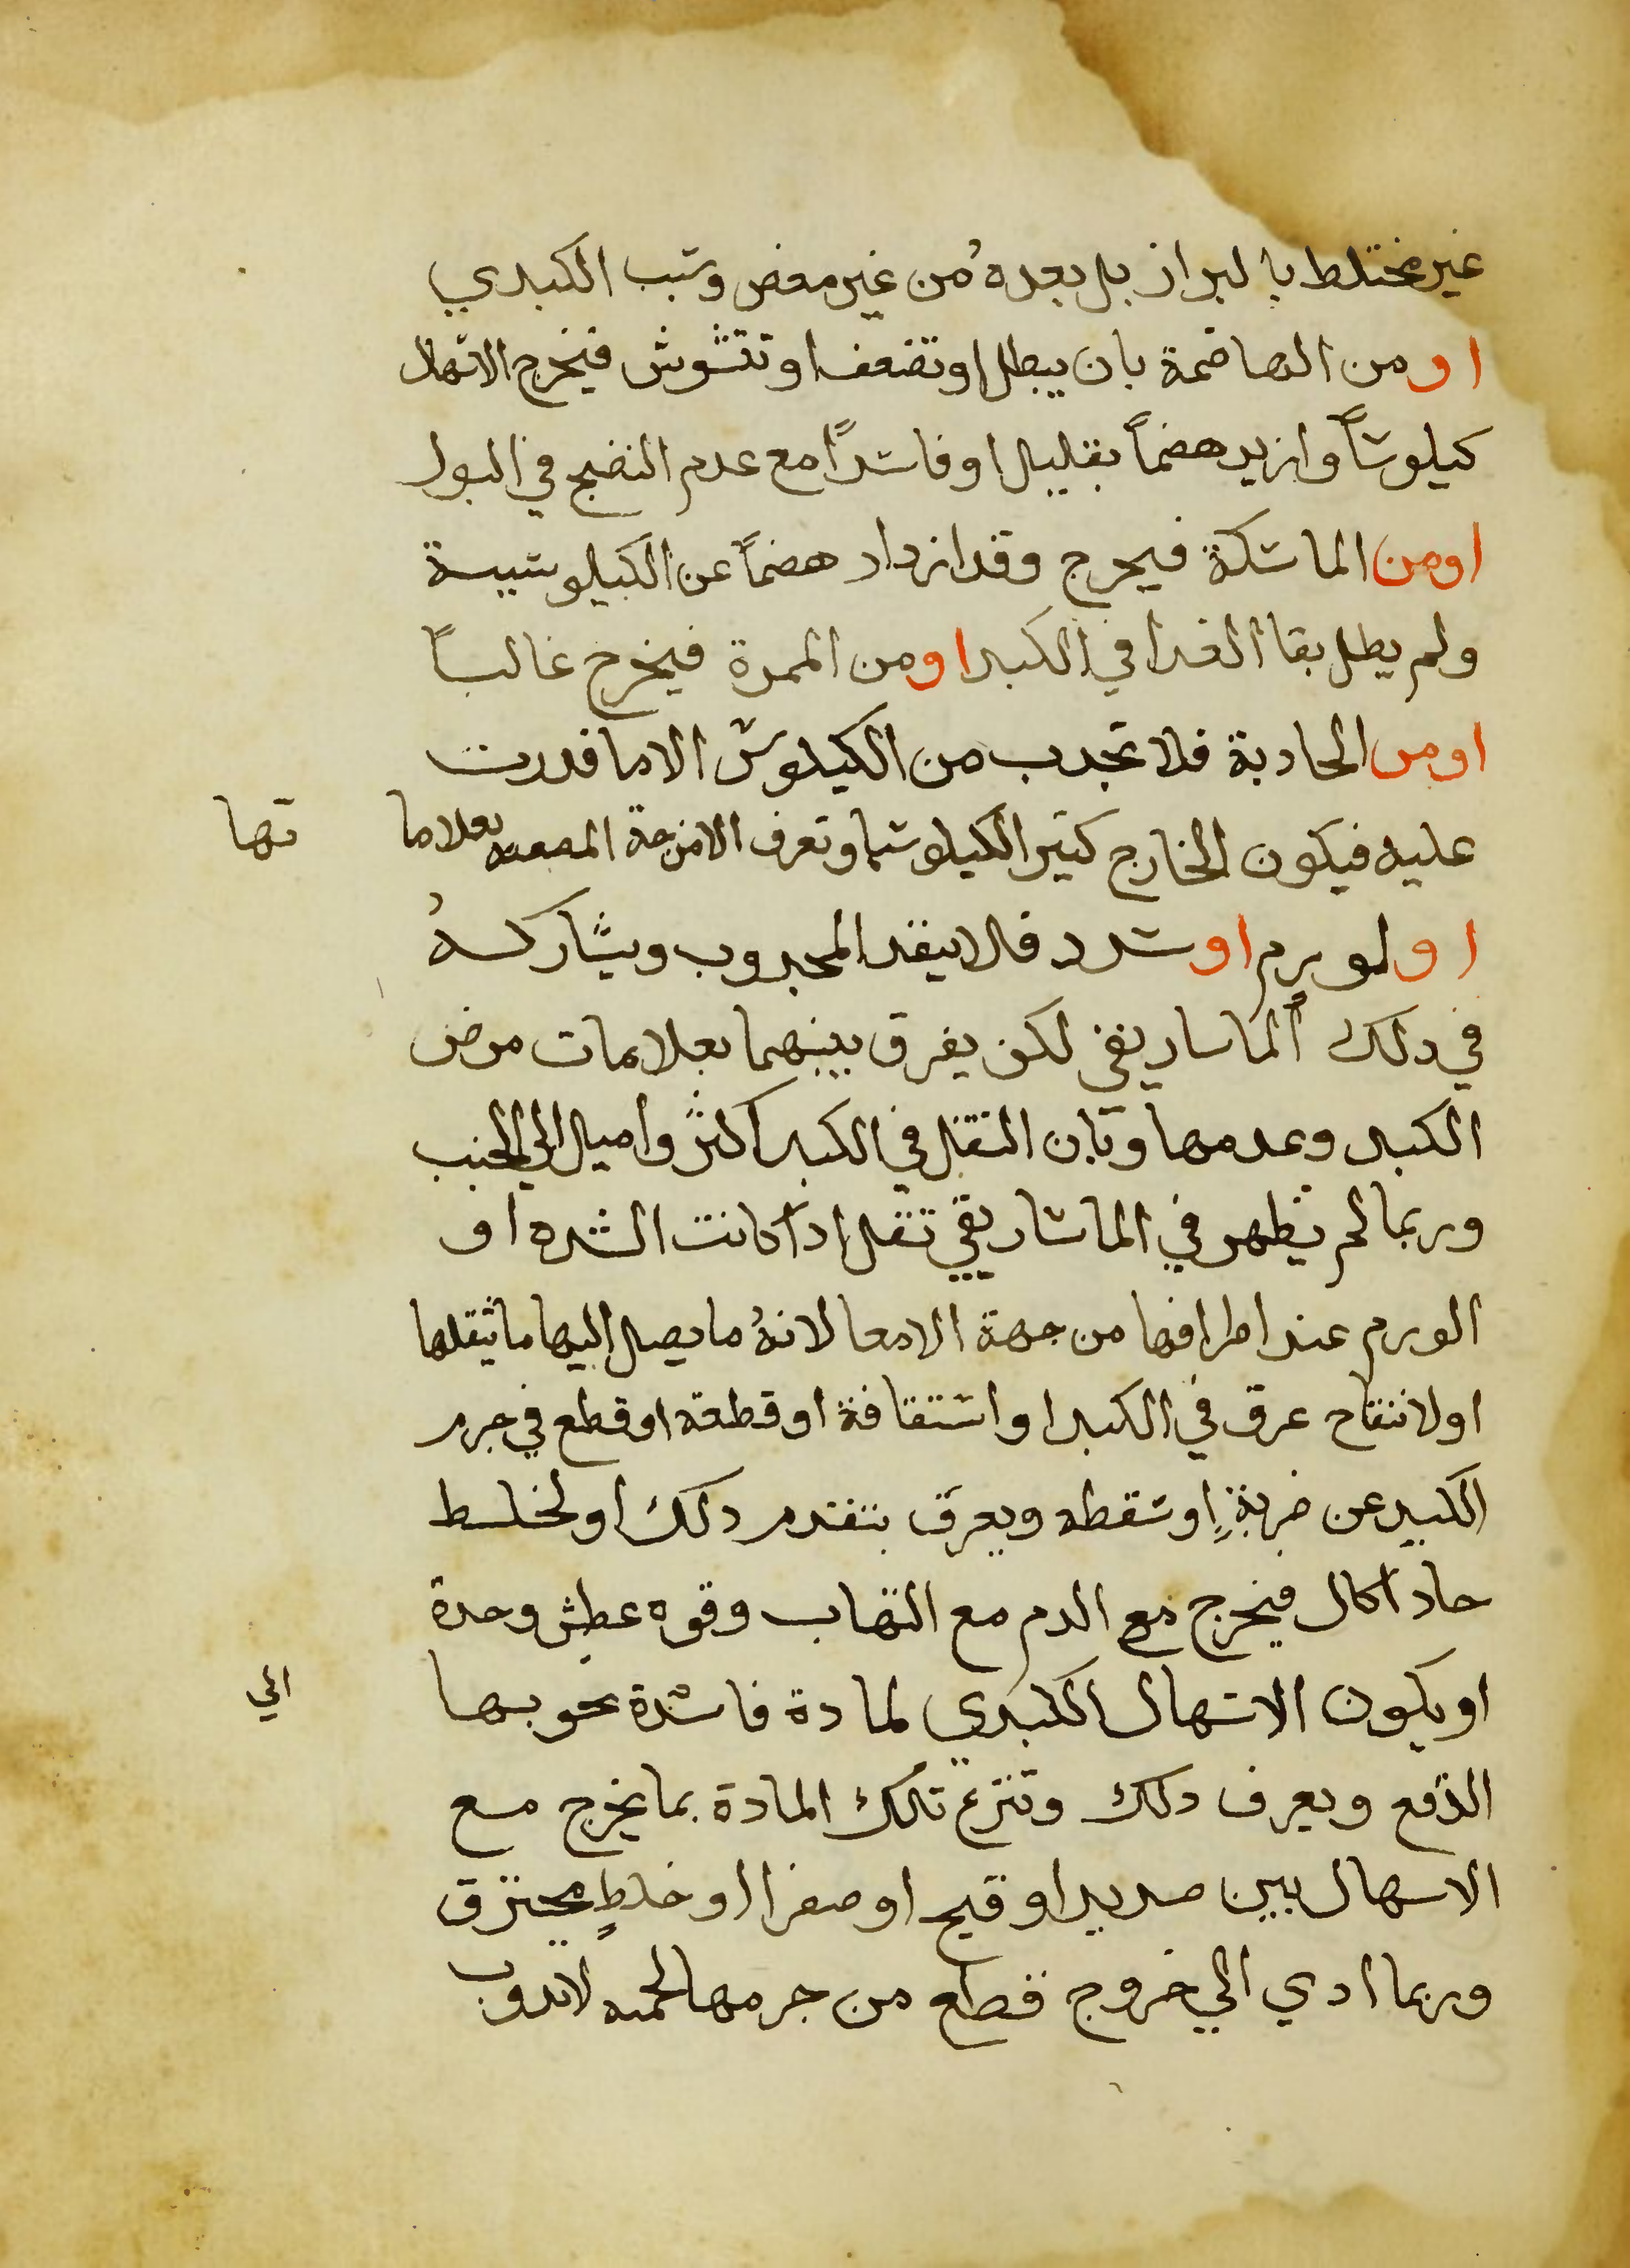 غير مختلط بالبراز بل بعده من غير مغص وسبب الكبدي
او من الهاضمة بان يبطل او تضعف او تتشوش فيخرج الاسهال
كيلوساً وازيد هضماً بقليل او فاسداً مع عدم النضج في البول
اومن الماسكة فيخرج وقد ازداد هضماً عن الكيلوسية
ولم يطل بقا الغدا في الكبد اومن المميزة فيخرج غالباً
اومن الجادبة فلا تجدب من الكيلوس الا ما قدرت
عليه فيكون الخارج كتير الكيلوسيا وتعرف الامزجة المضعفة بعلاما تها
او لورم او سدد فلا ينفد المجدوب ويشاركه
في دلك الماساريقي لكن يفرق بينهما بعلامات مرض
الكبد وعدمها وبان التقل في الكبد اكثر واميل الي الجنب
وربما لم يظهر في الماساريقي تقل ادا كانت السده او
الورم عند اطرافها من جهة الامعا لانه ما يصل اليها ما يثقلها
او لانفتاح عرق في الكبد او انشقاقه او قطعه او قطع في جرم
الكبد عن ضربةٍ او سقطه ويعرف بتقدم دلك او لخلط
حاد اكال فيخرج مع الدم مع التهاب وقوه عطش وحدة
او يكون الاسهال الكبدي لمادة فاسدة تحوجها الي
الدفع ويعرف دلك وتنزع تلك المادة بما يخرج مع
الاسهال من صديد او قيح او صفرا او خلطٍ محترق
وربما ادي الي خروج قطع من جرمها لحميه لا تدوب